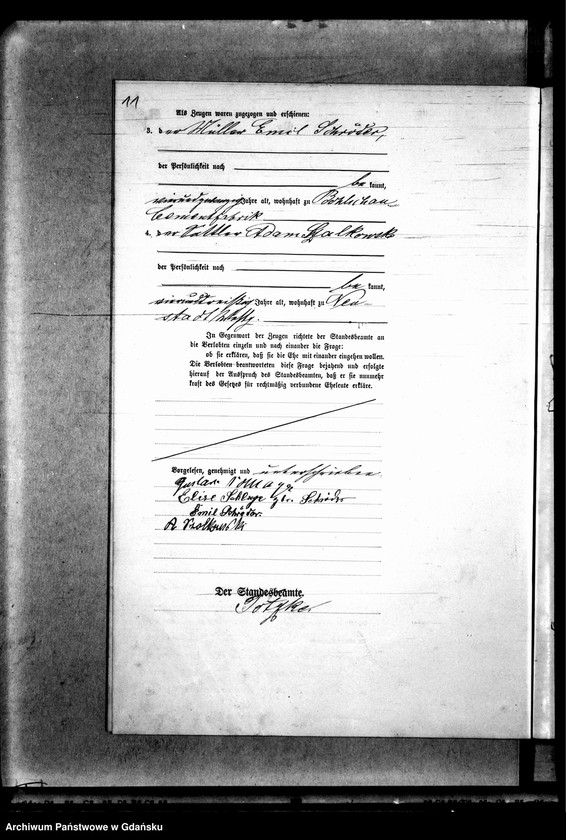 11
Als Zeugen waren zugezogen und erschienen:
3. der Müller Emil Schröder,
der Persönlichkeit nach
be kannt,
vierundzwanzig Jahre alt, wohnhaft zu Bohlschau-
Cementfabrik
4. der Sattler Adam Szalkowski
der Persönlichkeit nach
be kannt,
vierunddreißig Jahre alt, wohnhaft zu Neu-
stadt Westpr.
In Gegenwart der Zeugen richtete der Standesbeamte an
die Verlobten einzeln und nach einander die Frage:
ob sie erklären, daß sie die Ehe mit einander eingehen wollen.
Die Verlobten beantworteten diese Frage bejahend und erfolgte
hierauf der Ausspruch des Standesbeamten, daß er sie nunmehr
kraft des Gesetzes für rechtmäßig verbundene Eheleute erkläre.
Vorgelesen, genehmigt und unterschrieben
Gustav
Elise geb. Schröder
Emil Schröder.
A Szalkowski
Der Standesbeamte.
Archiwum Państwowe w Gdańsku